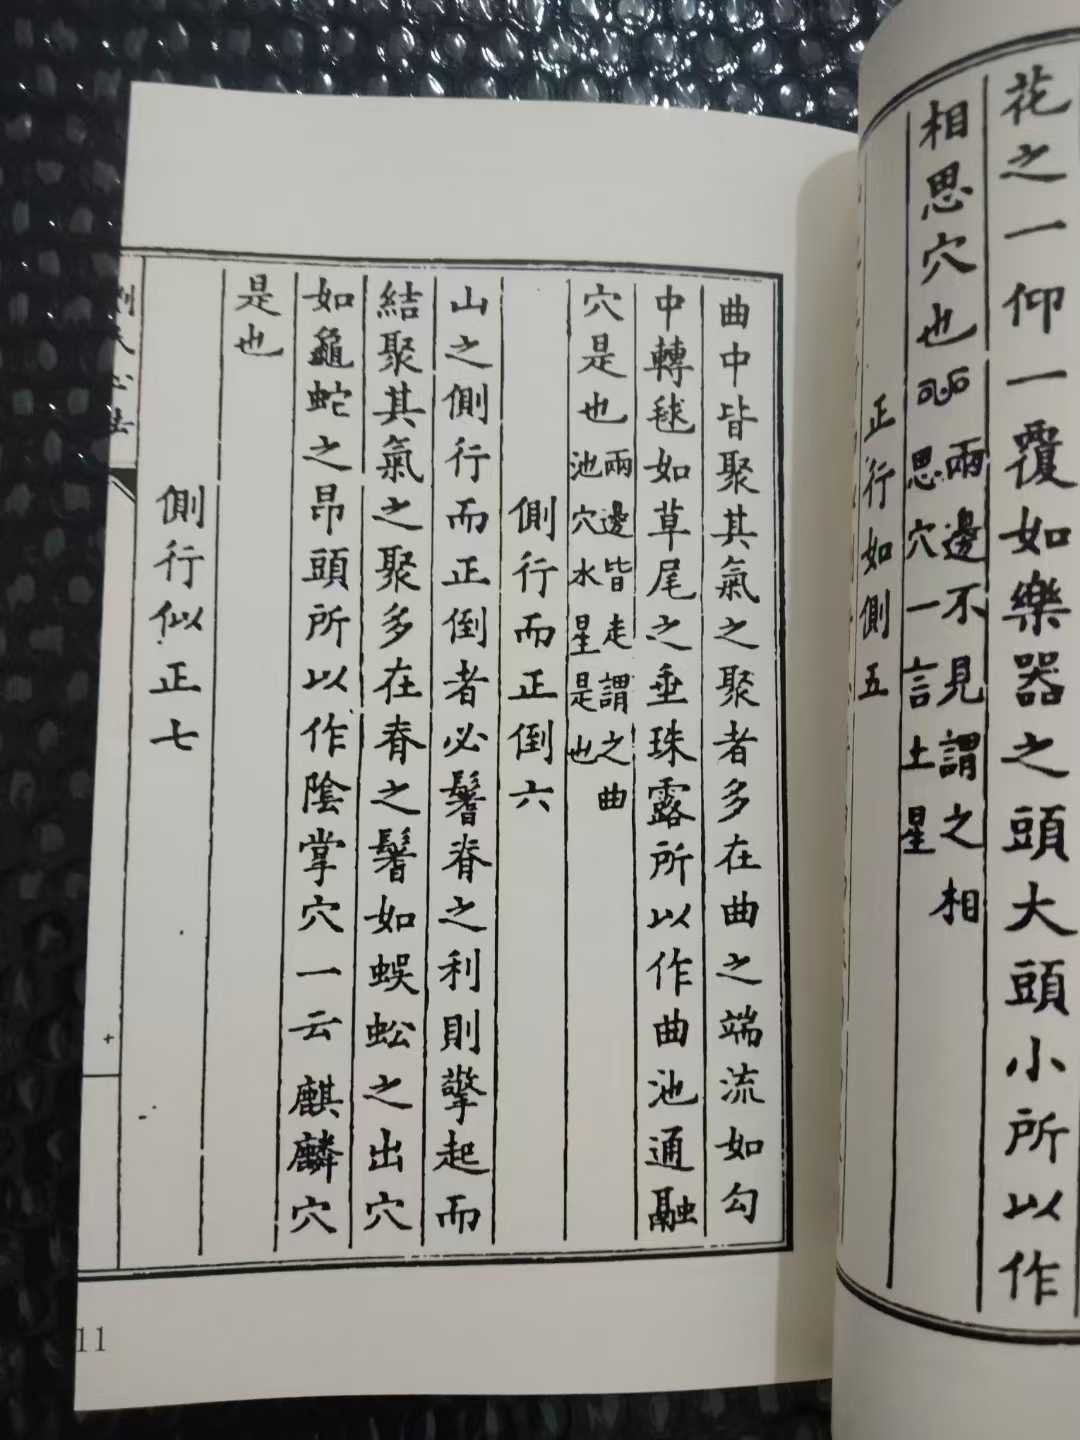 花之一仰一覆如樂器之頭大頭小所以作
相思穴也
兩邊不見謂之相
思穴一言土星
正行如側五
曲中皆聚其氣之聚者多在曲之端流如勾
中轉毬如草尾之垂珠露所以作曲池通融
穴是也
兩邊皆走謂之曲
池穴水星是也
側行而正倒六
山之側行而正倒者必鬐脊之利則擎起而
結聚其氣之聚多在脊之鬐如蜈蚣之出穴
如龜蛇之昂頭所以作陰掌穴一云麒麟穴
是也
側行似正七
十
11